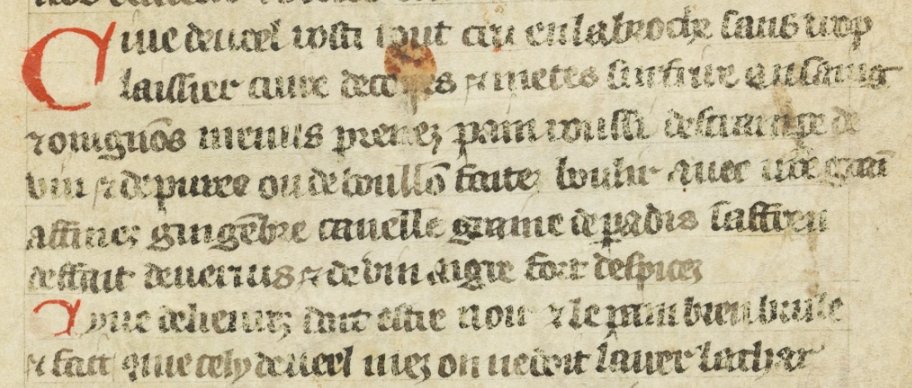 Ciue de ueel rosti tout cru en la broche sans trop
laissier cuire decopes et metes surfrire en saing
et oingnõs menus prenez pain roussi destrampe de
vin et de puree ou de boullõ faitez boulir auec ur̃e grain
affinez gingẽbre canelle graine de padis saffren
deffait de uerius et de vin aigre fort despicez
Ciue de lieurez doit estre noir et le pain bien brule
et fait que cely de ueel mez on ne doit lauer la char